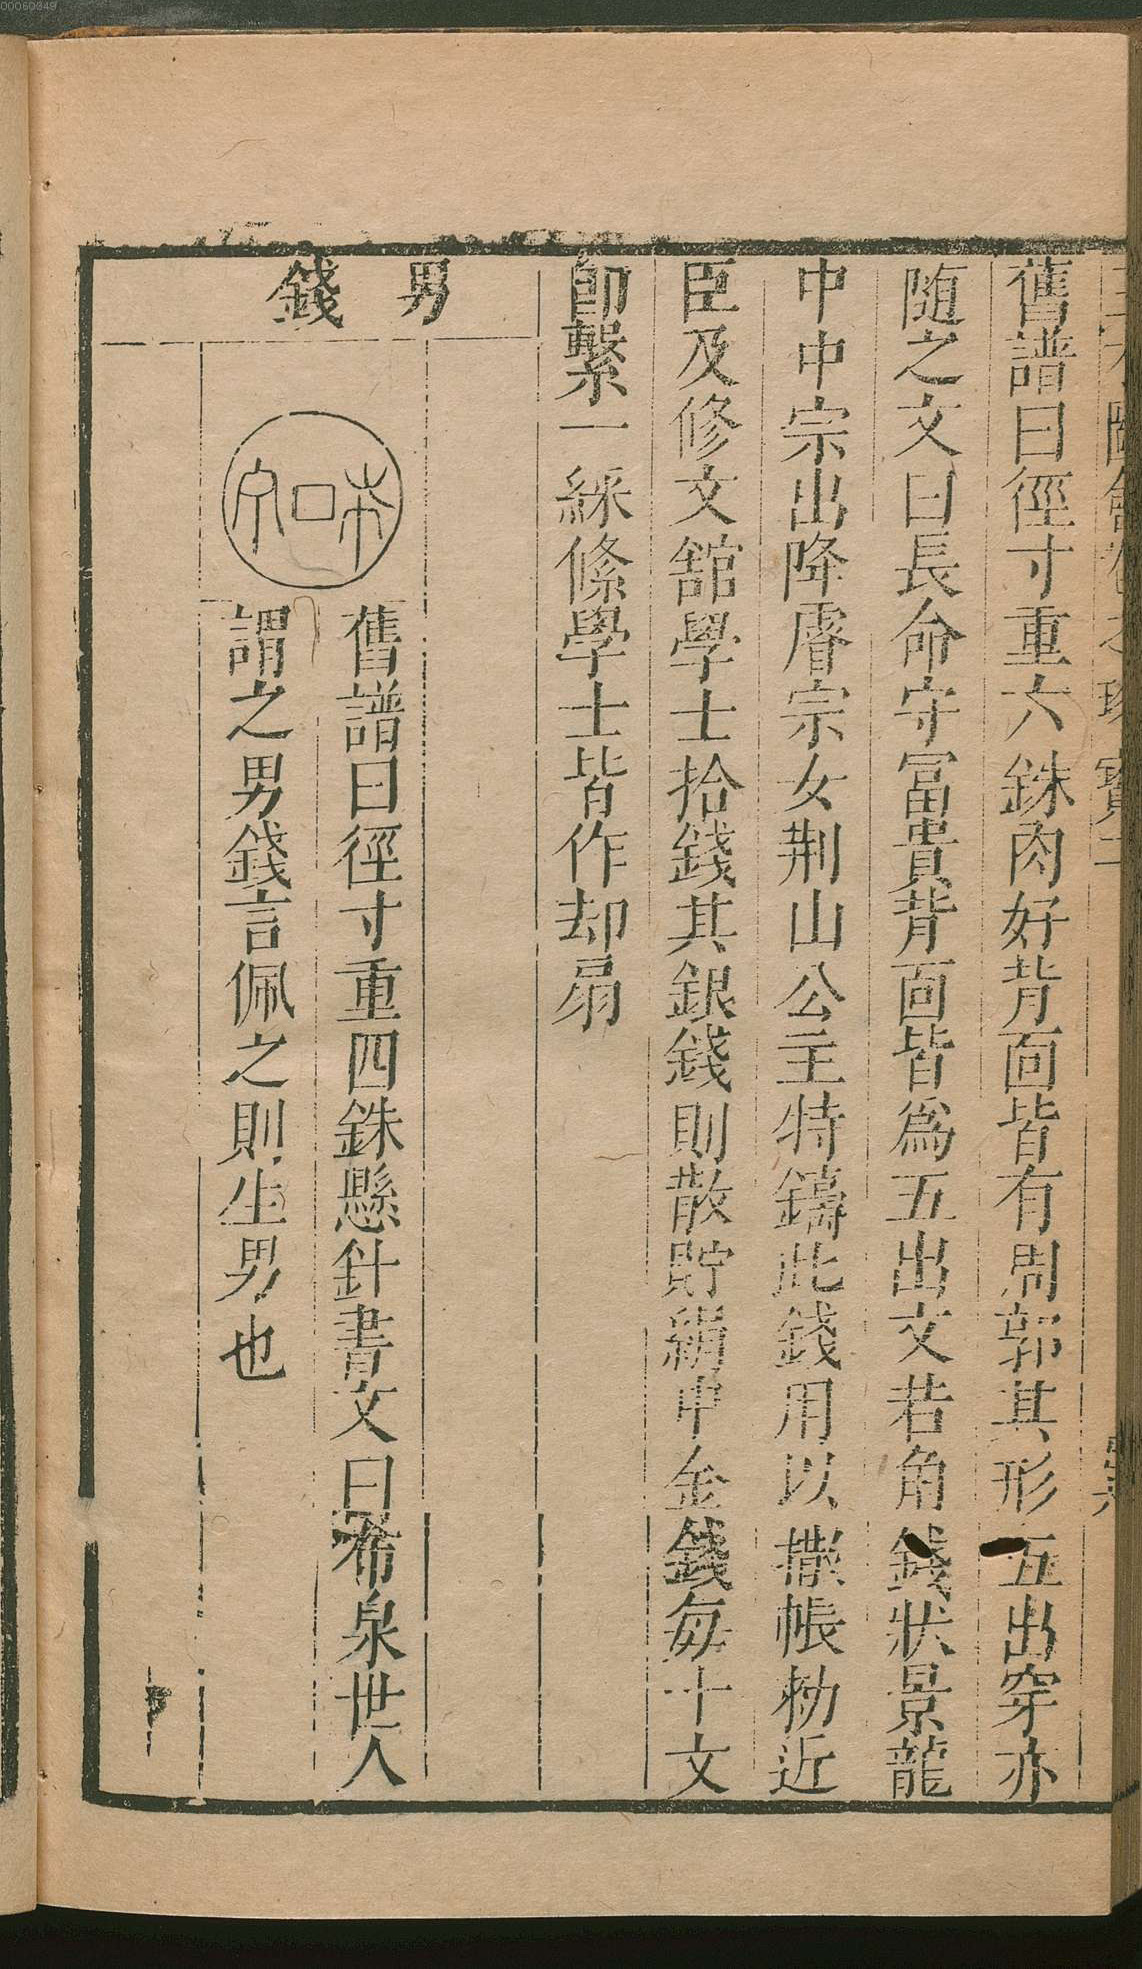 00060049
舊譜曰徑寸重六銖肉好背面皆有周郭其形五出穿亦
隨之文曰長命守冨貴背面皆爲五出文若角錢狀景龍
中中宗出降睿宗女荆山公主特鑄此錢用以撒帳勑近
臣及修文舘學士拾錢其銀錢則散貯絹中金錢每十文
卽繫一綵絛學士皆作却扇
男
錢
布泉
舊譜曰徑寸重四銖懸針書文曰布泉世人
謂之男錢言佩之則生男也